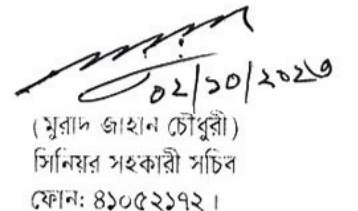 ০২/১০/২০২৩
(মুরাদ জাহান চৌধুরী)
সিনিয়র সহকারী সচিব
ফোন: ৪১০৫২১৭২।